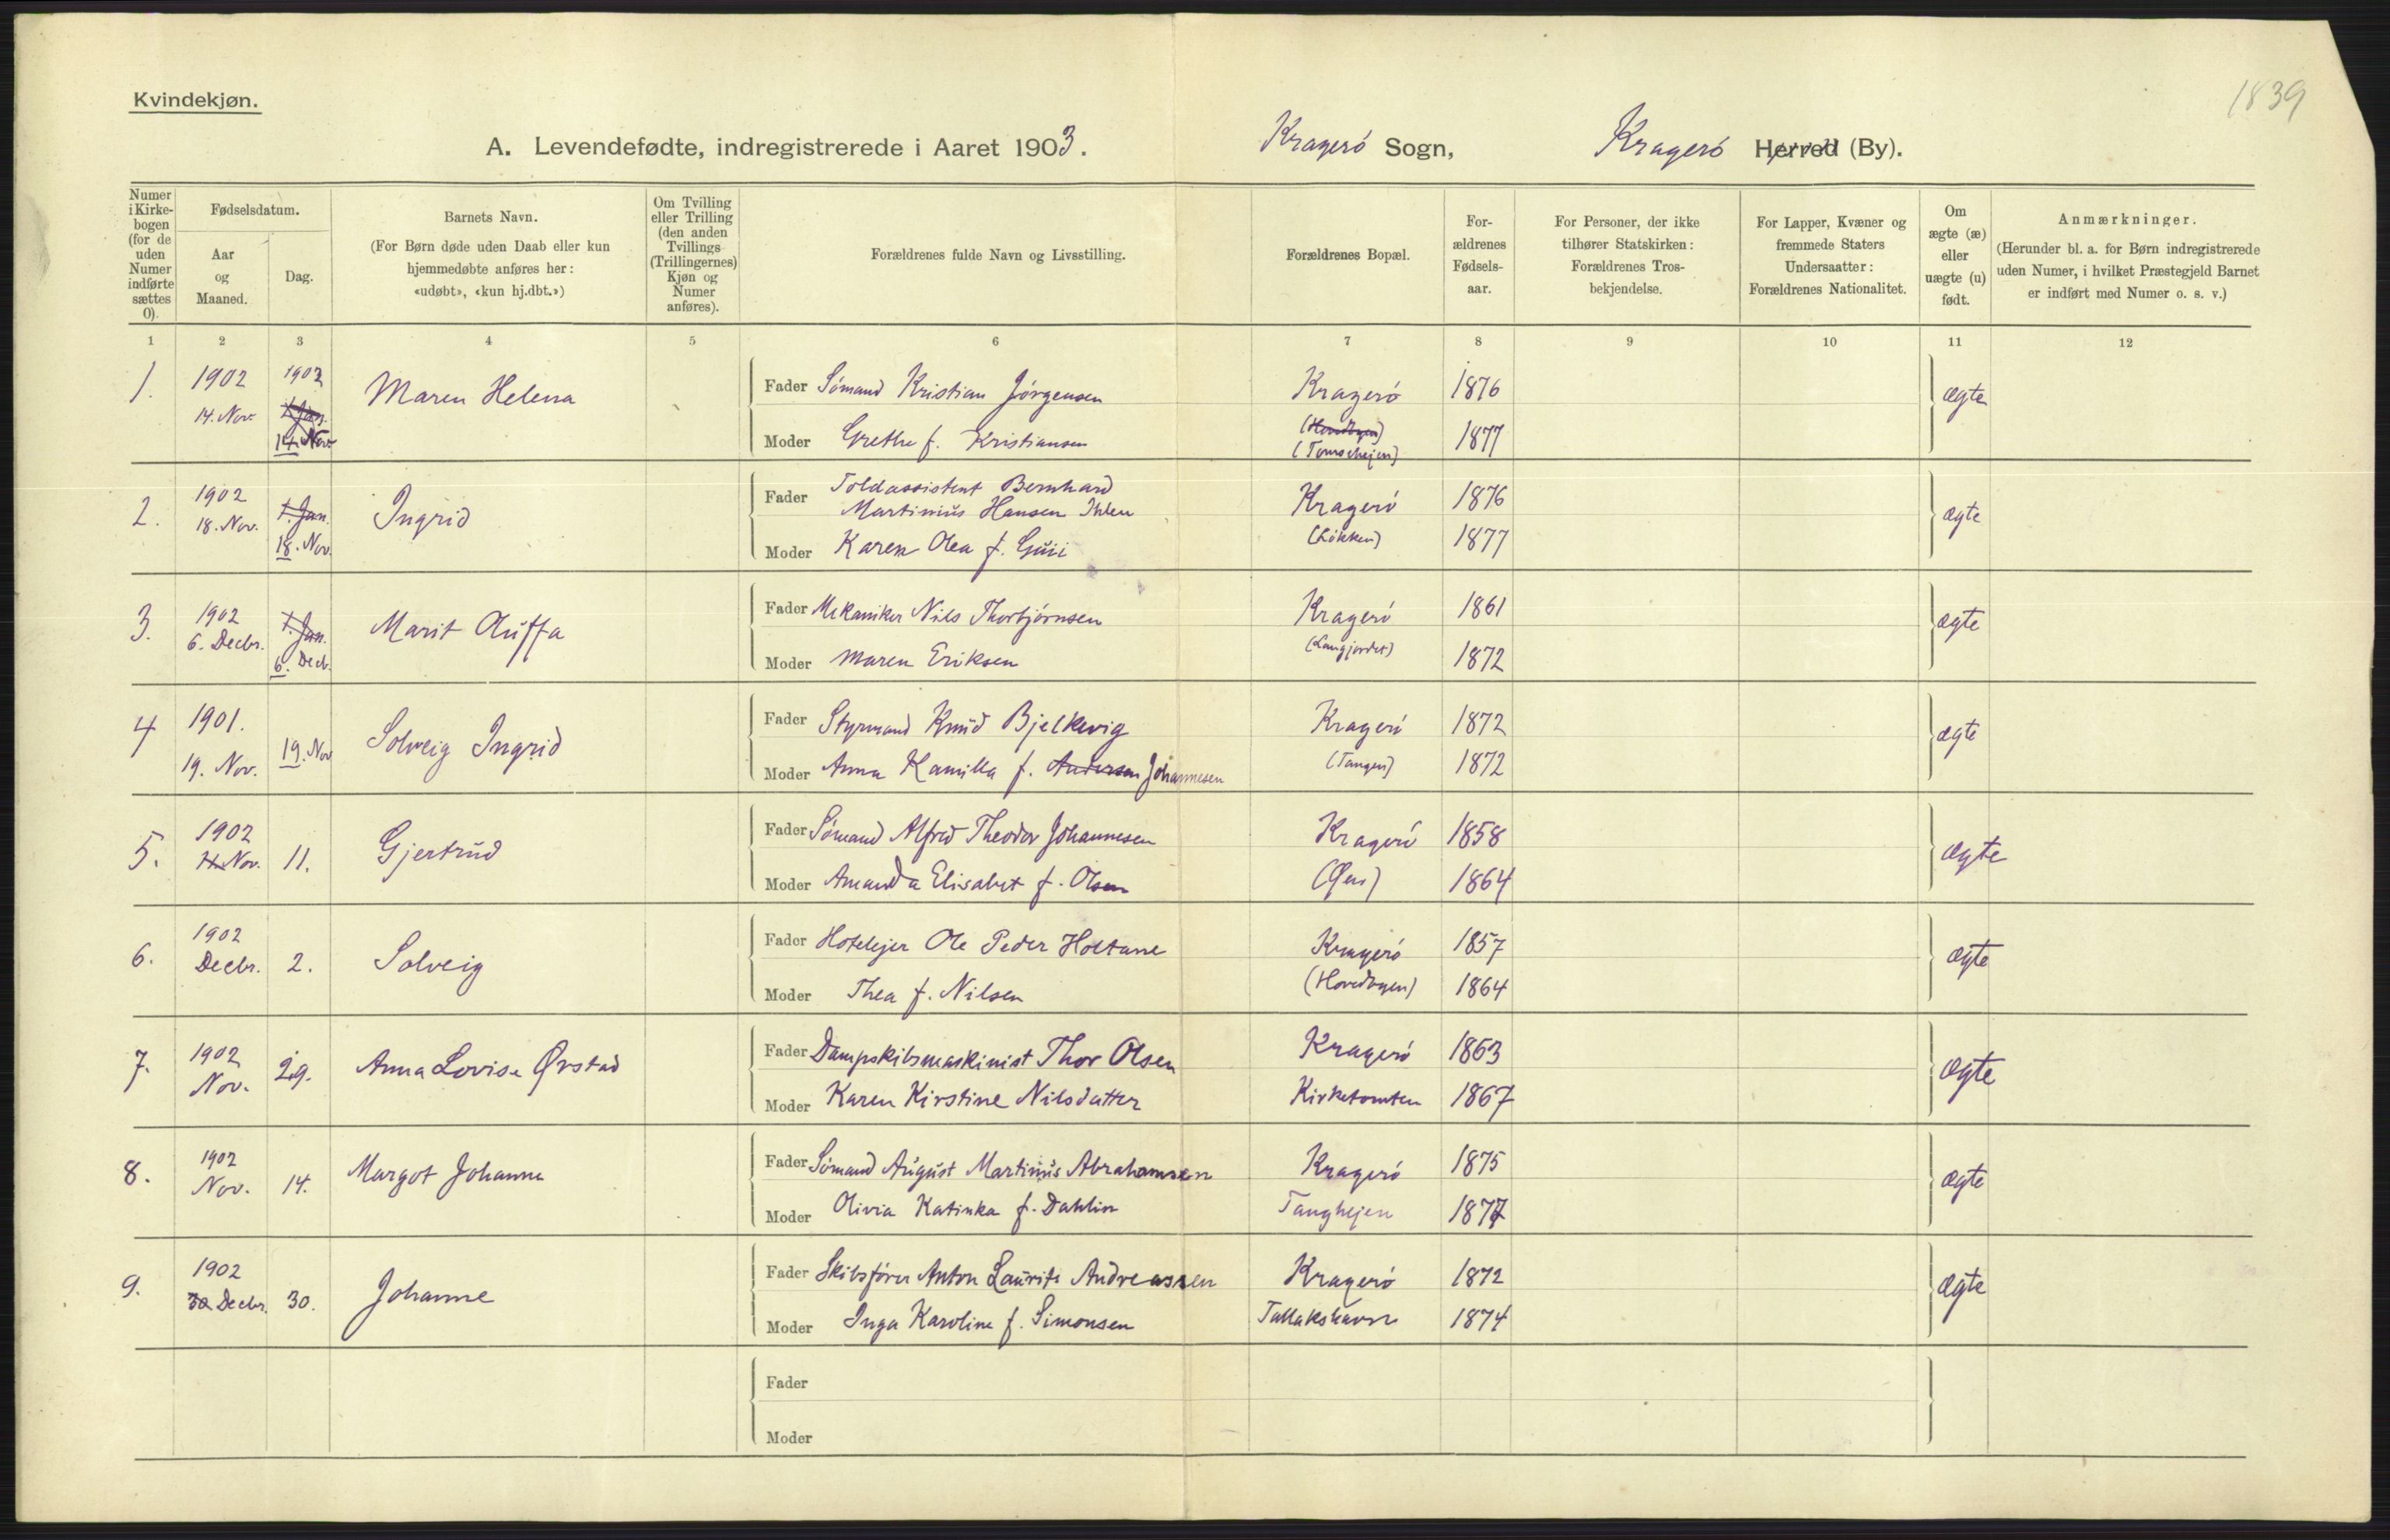 1839
Kvindekjøn.
A. Levendefødte, indregistrerede i Aaret 1903. Kragerö Sogn, Kragerö Herred (By).
Numer i Kirkebogen (for de uden Numer indførte sættes 0).
Fødselsdatum.
Aar og Maaned.
Dag.
Barnets Navn.
(For Børn døde uden Daab eller kun
hjemmedøbte anføres her:
«udøbt», «kun hj.dbt.»)
Om Tvilling
eller Trilling
(den anden
Tvillings
(Trillingernes)
Kjøn og
Numer
anføres).
Forældrenes fulde Navn og Livsstilling.
Forældrenes Bopæl.
For-
ældrenes
Fødsels-
aar.
For Personer, der ikke
tilhører Statskirken:
Forældrenes Tros-
bekjendelse.
For Lapper, Kvæner og
fremmede Staters
Undersaatter:
Forældrenes Nationalitet.
Om
ægte (æ)
eller
uægte (u)
født.
Anmærkninger.
(Herunder bl. a. for Børn indregistrerede
uden Numer, i hvilket Præstegjeld Barnet
er indført med Numer o. s. v.)
1 2 3 4 5 6 7 8 9 10 11 12
1. 1902 1902 Maren Helena Fader Sömand Kristian Jörgensen Kragerö 1876 ægte
14. Nov. 1. Jan. 14. Nov Moder Grethe f. Kristiansen 1877
2. 1902 1. Jan. Ingrid Fader Toldassistent Bernhard
Martinius Hansen Ihlen Kragerö 1876 ægte
18. Nov. 18. Nov. Moder Karen Olea f. (Lökken) 1877
3. 1902 1. Jan. Marit Fader Mekaniker Nils Thorbjörnsen Kragerö 1861 ægte
6. Decbr. 6. Decb. Moder Maren Eriksen 1872
4 1901. Solveig Ingrid Fader Styrmand Knud Bjelkevig Kragerö 1872 ægte
19. Nov. 19. Nov Moder Anna Kamilla f. Andersen Johannesen (Tangen) 1872
5. 1902 Gjertrud Fader Sömand Alfred Theodor Johannesen Kragerö 1858 ægte
11. Nov. 11. Moder Amanda Elisabet f. Olsen 1864
6. 1902 Solveig Fader Hotelejer Ole Peder Holtane Kragerö 1857 ægte
Decbr. 2. Moder Thea f. Nilsen (Hovedbyen) 1864
7. 1902 Anna Lovise Ørstad Fader Dampskibsmaskinist Thor Olsen Kragerö 1863 ægte
Nov. 29. Moder Karen Kirstine Nilsdatter Kirketomten 1867
8. 1902 Margot Johanne Fader Sömand August Martinius Abrahamsen Kragerö 1875 ægte
Nov. 14. Moder Olivia Katinka f. Dahlin Tanghejen 1877
9. 1902 Johanne Fader Skibsförer Anton Laurits Andreassen Kragerö 1872 ægte
30 Decbr. 30. Moder Inga Karoline f. Simonsen Tallakshavn 1874
Fader
Moder